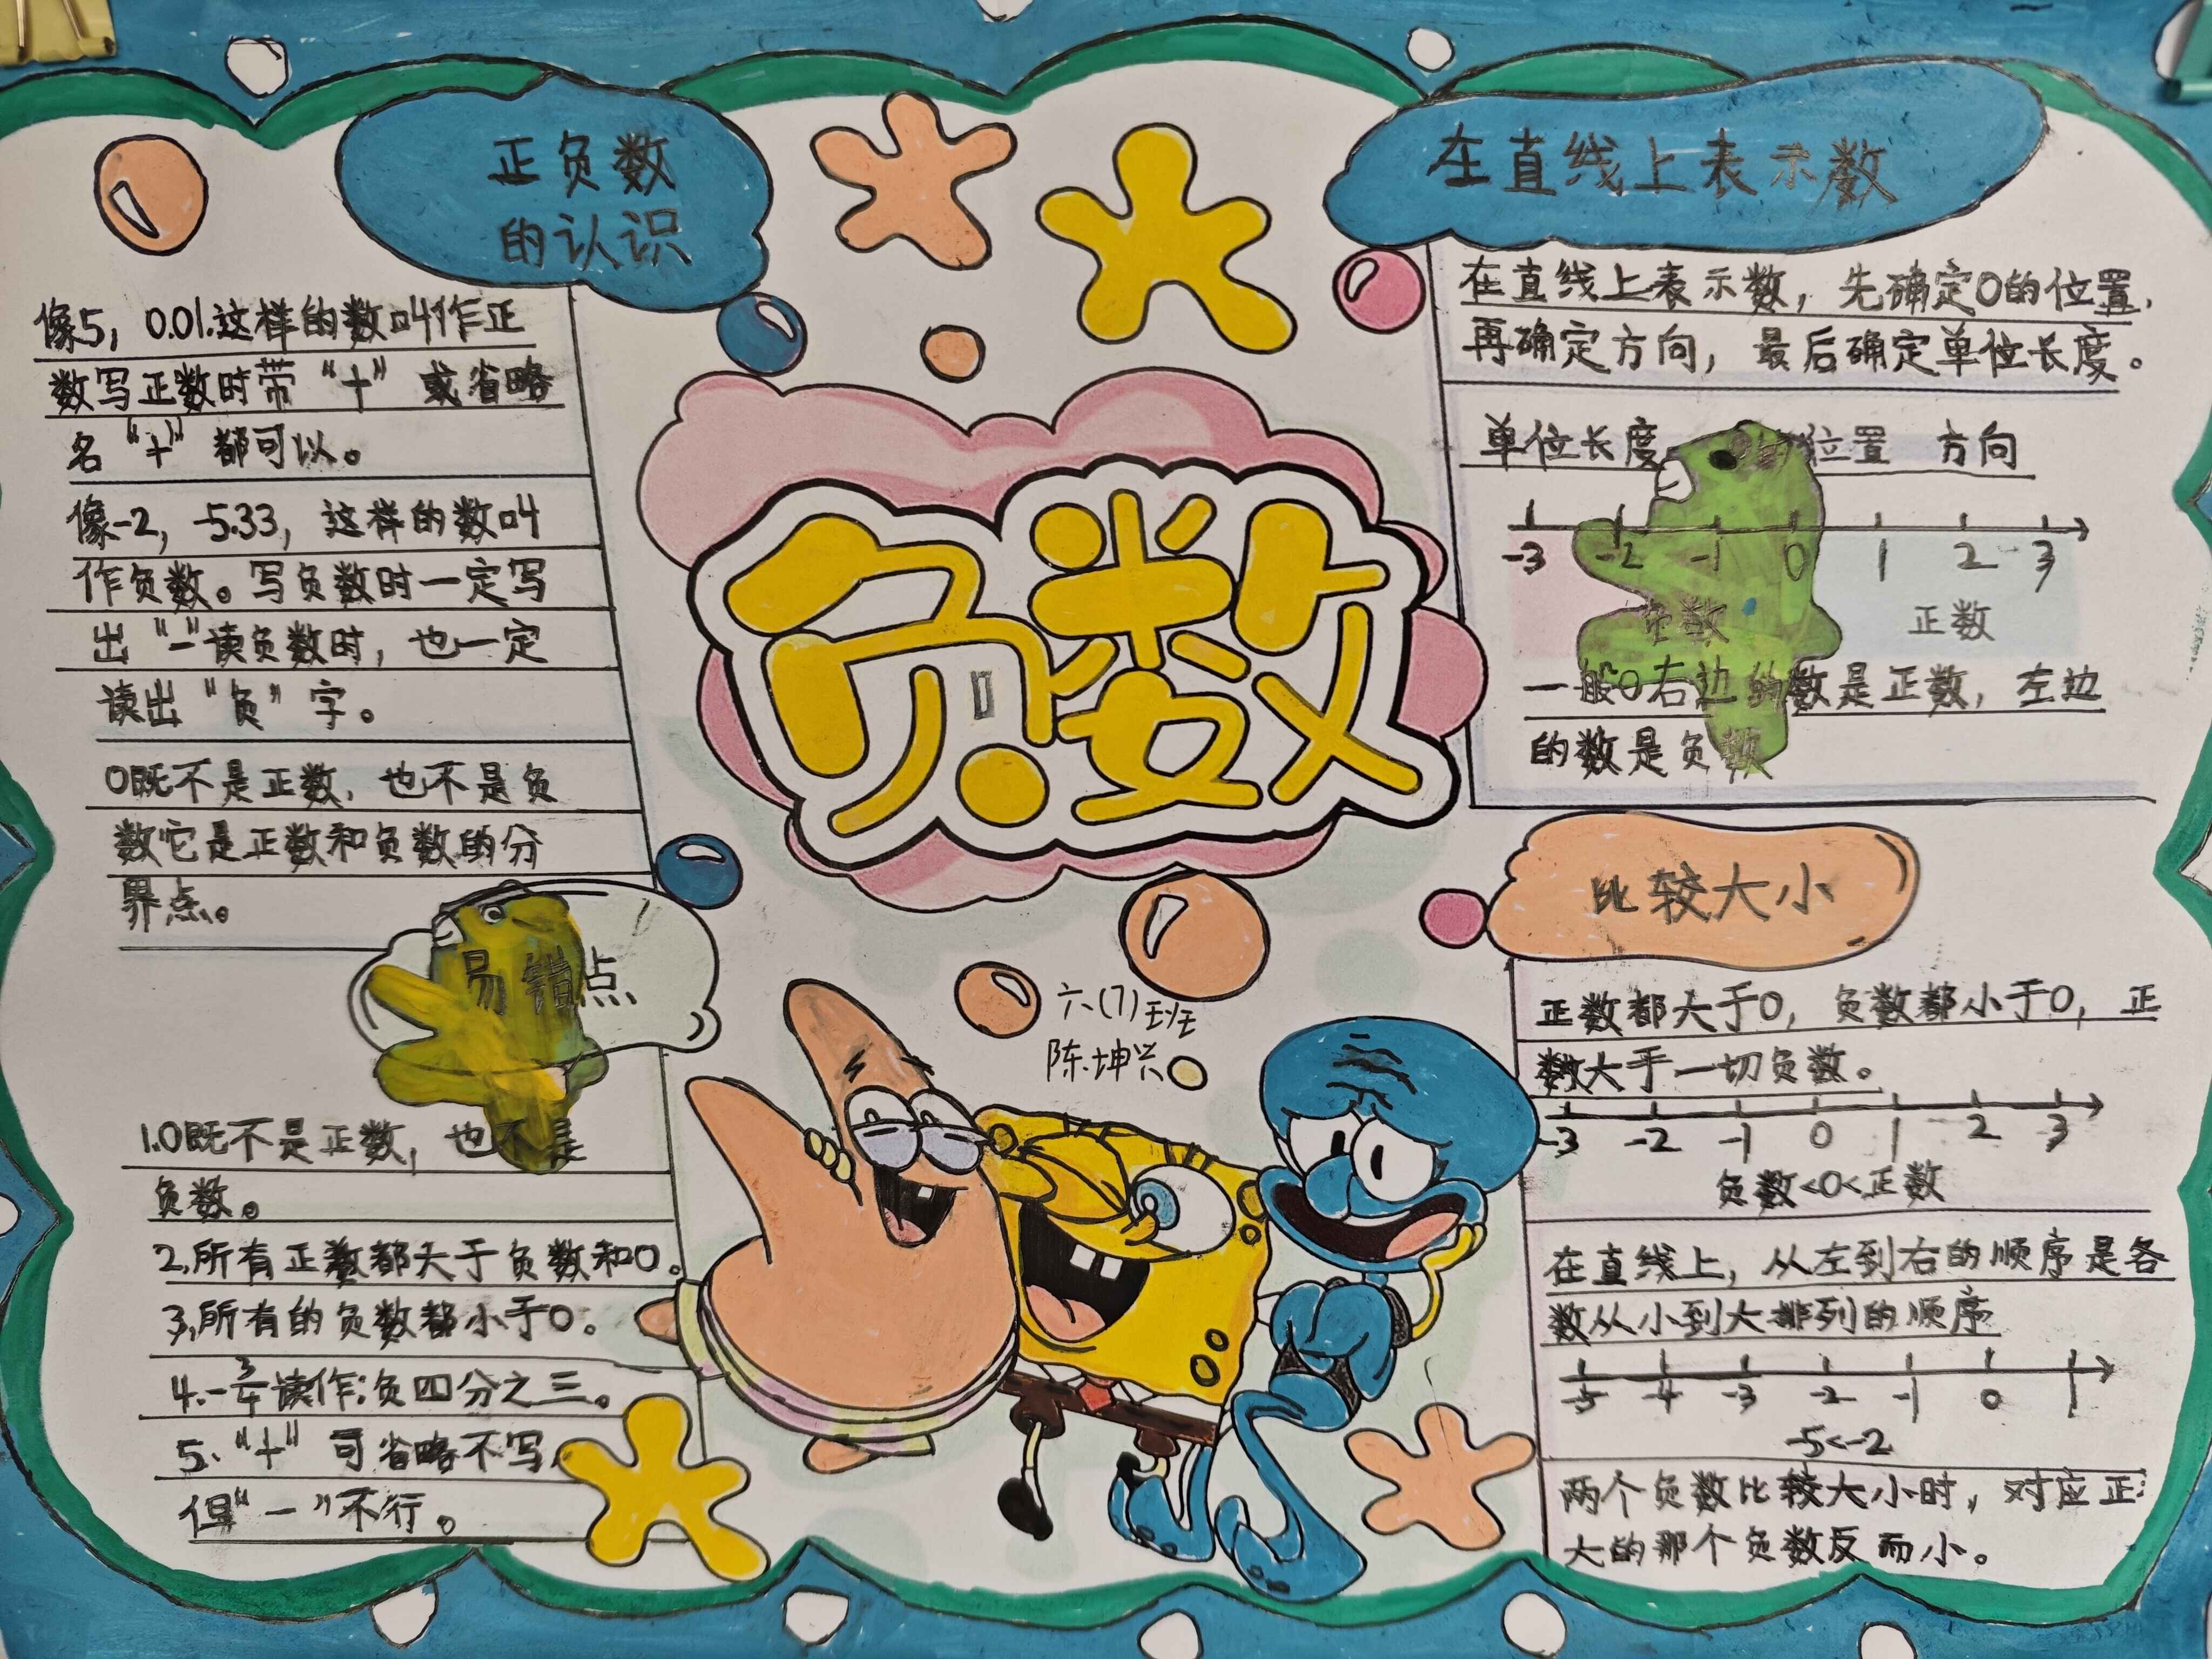 正负数
的认识
像5，0.01.这样的数叫作正
数写正数时带“+”或省略
名“+”都可以。
像-2，-5.33，这样的数叫
作负数。写负数时一定写
出“-”读负数时，也一定
读出“负”字。
0既不是正数，也不是负
数它是正数和负数的分
界点。
易错点
1.0既不是正数，也不是
负数。
2.所有正数都大于负数和0。
3.所有的负数都小于0。
4.-3/4读作：负四分之三。
5.“+”可省略不写，
但“-”不行。
负数
六(7)班
陈坤兴
在直线上表示数
在直线上表示数，先确定0的位置，
再确定方向，最后确定单位长度。
单位长度 位置 方向
-3 -2 -1 0 1 2 3
负数 正数
一般0右边的数是正数，左边
的数是负数
比较大小
正数都大于0，负数都小于0，正
数大于一切负数。
-3 -2 -1 0 1 2 3
负数<0<正数
在直线上，从左到右的顺序是各
数从小到大排列的顺序
-5 -4 -3 -2 -1 0 1
-5<-2
两个负数比较大小时，对应正
大的那个负数反而小。